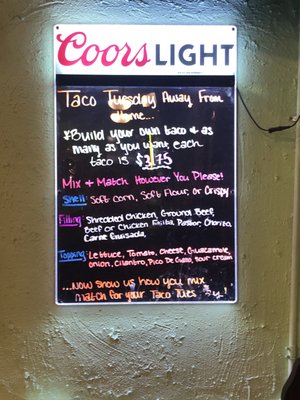 Coors LIGHT
Taco Tuesday Away From
Home...
*Build your own taco & as
many as you want each
taco is $3.75
Mix & Match However You Please!
Shell: Soft Corn, Soft Flour, or Crispy
Filling: Shredded Chicken, Ground Beef,
Beef or Chicken Fajita, Pastor, Chorizo,
Carne Guisada,
Topping: Lettuce, Tomato, Cheese, Guacamole,
onion, Cilantro, Pico De Gallo, Sour cream
...Now show us how you mix
match for your Taco Tues y!